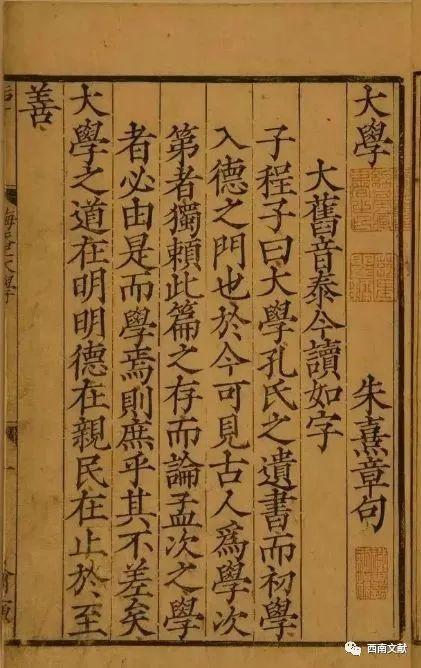 大學 朱熹章句
大舊音泰今讀如字
子程子曰大學孔氏之遺書而初學
入德之門也於今可見古人爲學次
第者獨頼此篇之存而論孟次之學
者必由是而學焉則庶乎其不差矣
大學之道在明明德在親民在止於至
善
西南文献